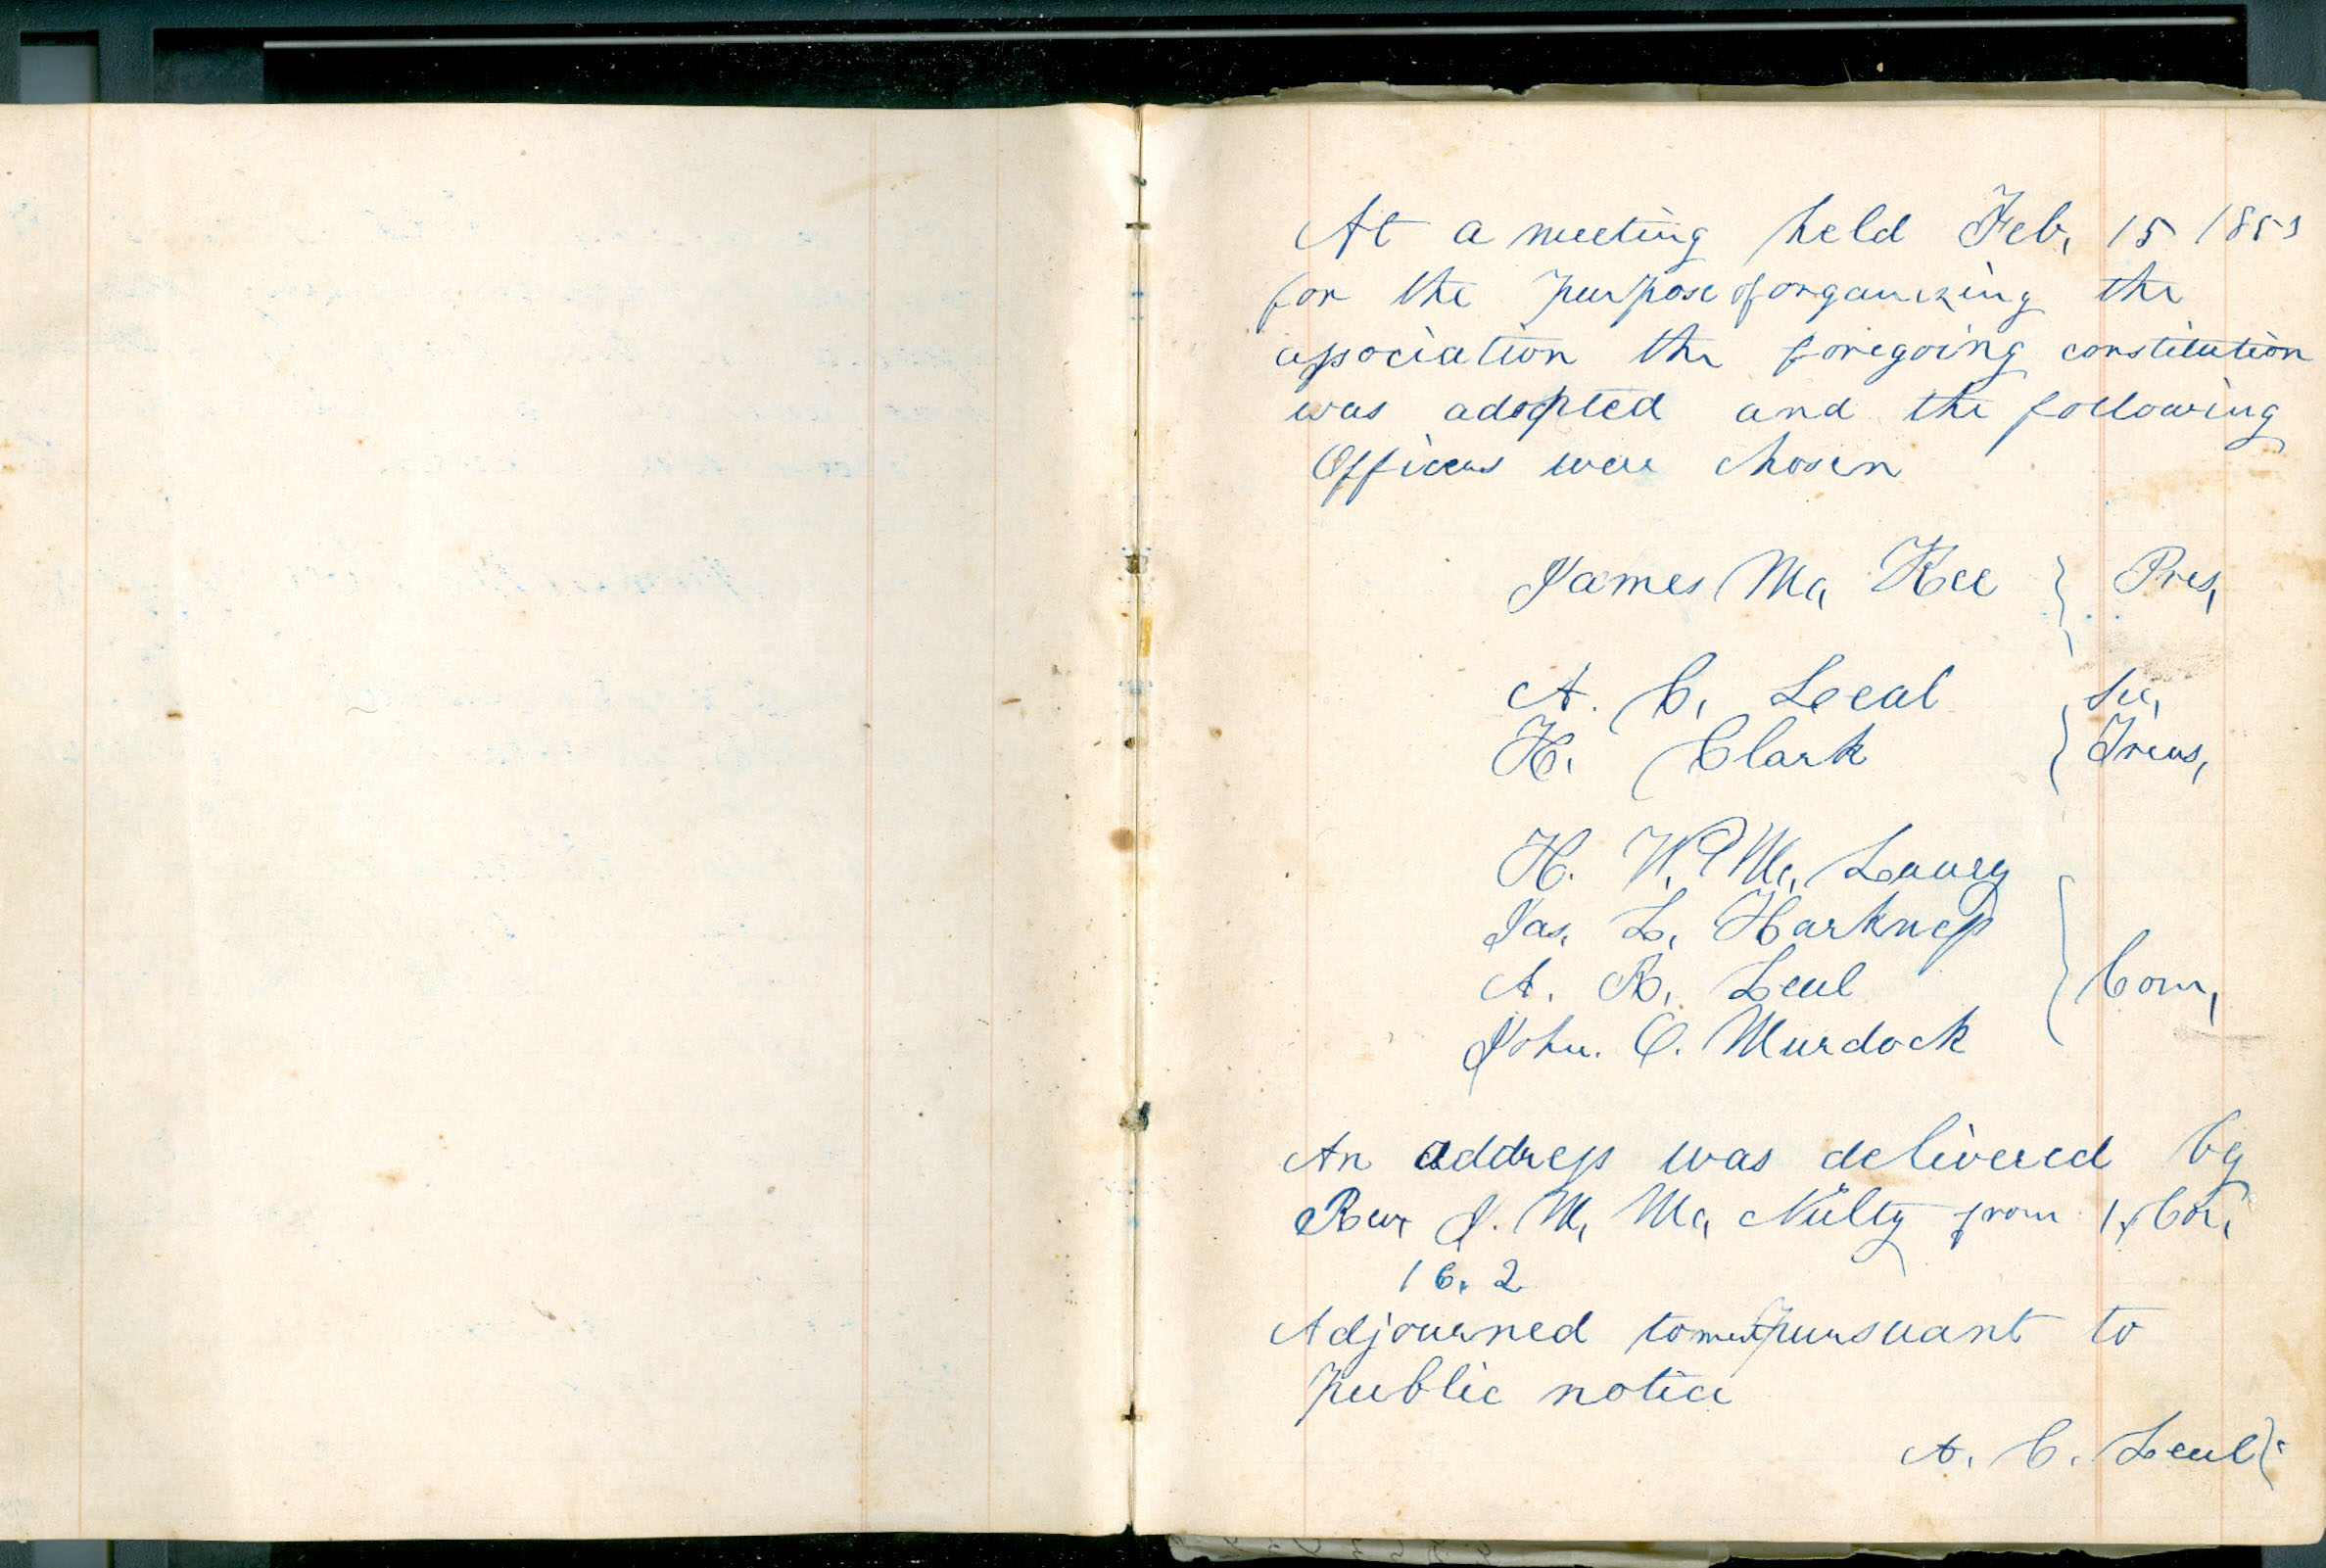 At a meeting held Feb, 15 1853
for the purpose of organizing the
association the foregoing constitution
was adopted and the following
Officers were chosen
James Mc, Kee } Pres,
A. C, Leal , Sec,
H. Clark } Treas,
H. W. Mc, Laury
Jas. L, Harkness
A. R, Leal } Com,
John. O. Murdock
An address was delivered by
Rev, J. M, Mc, Nulty from 1, Cor,
16. 2
Adjourned to meet pursuant to
public notice
A. C. Leal